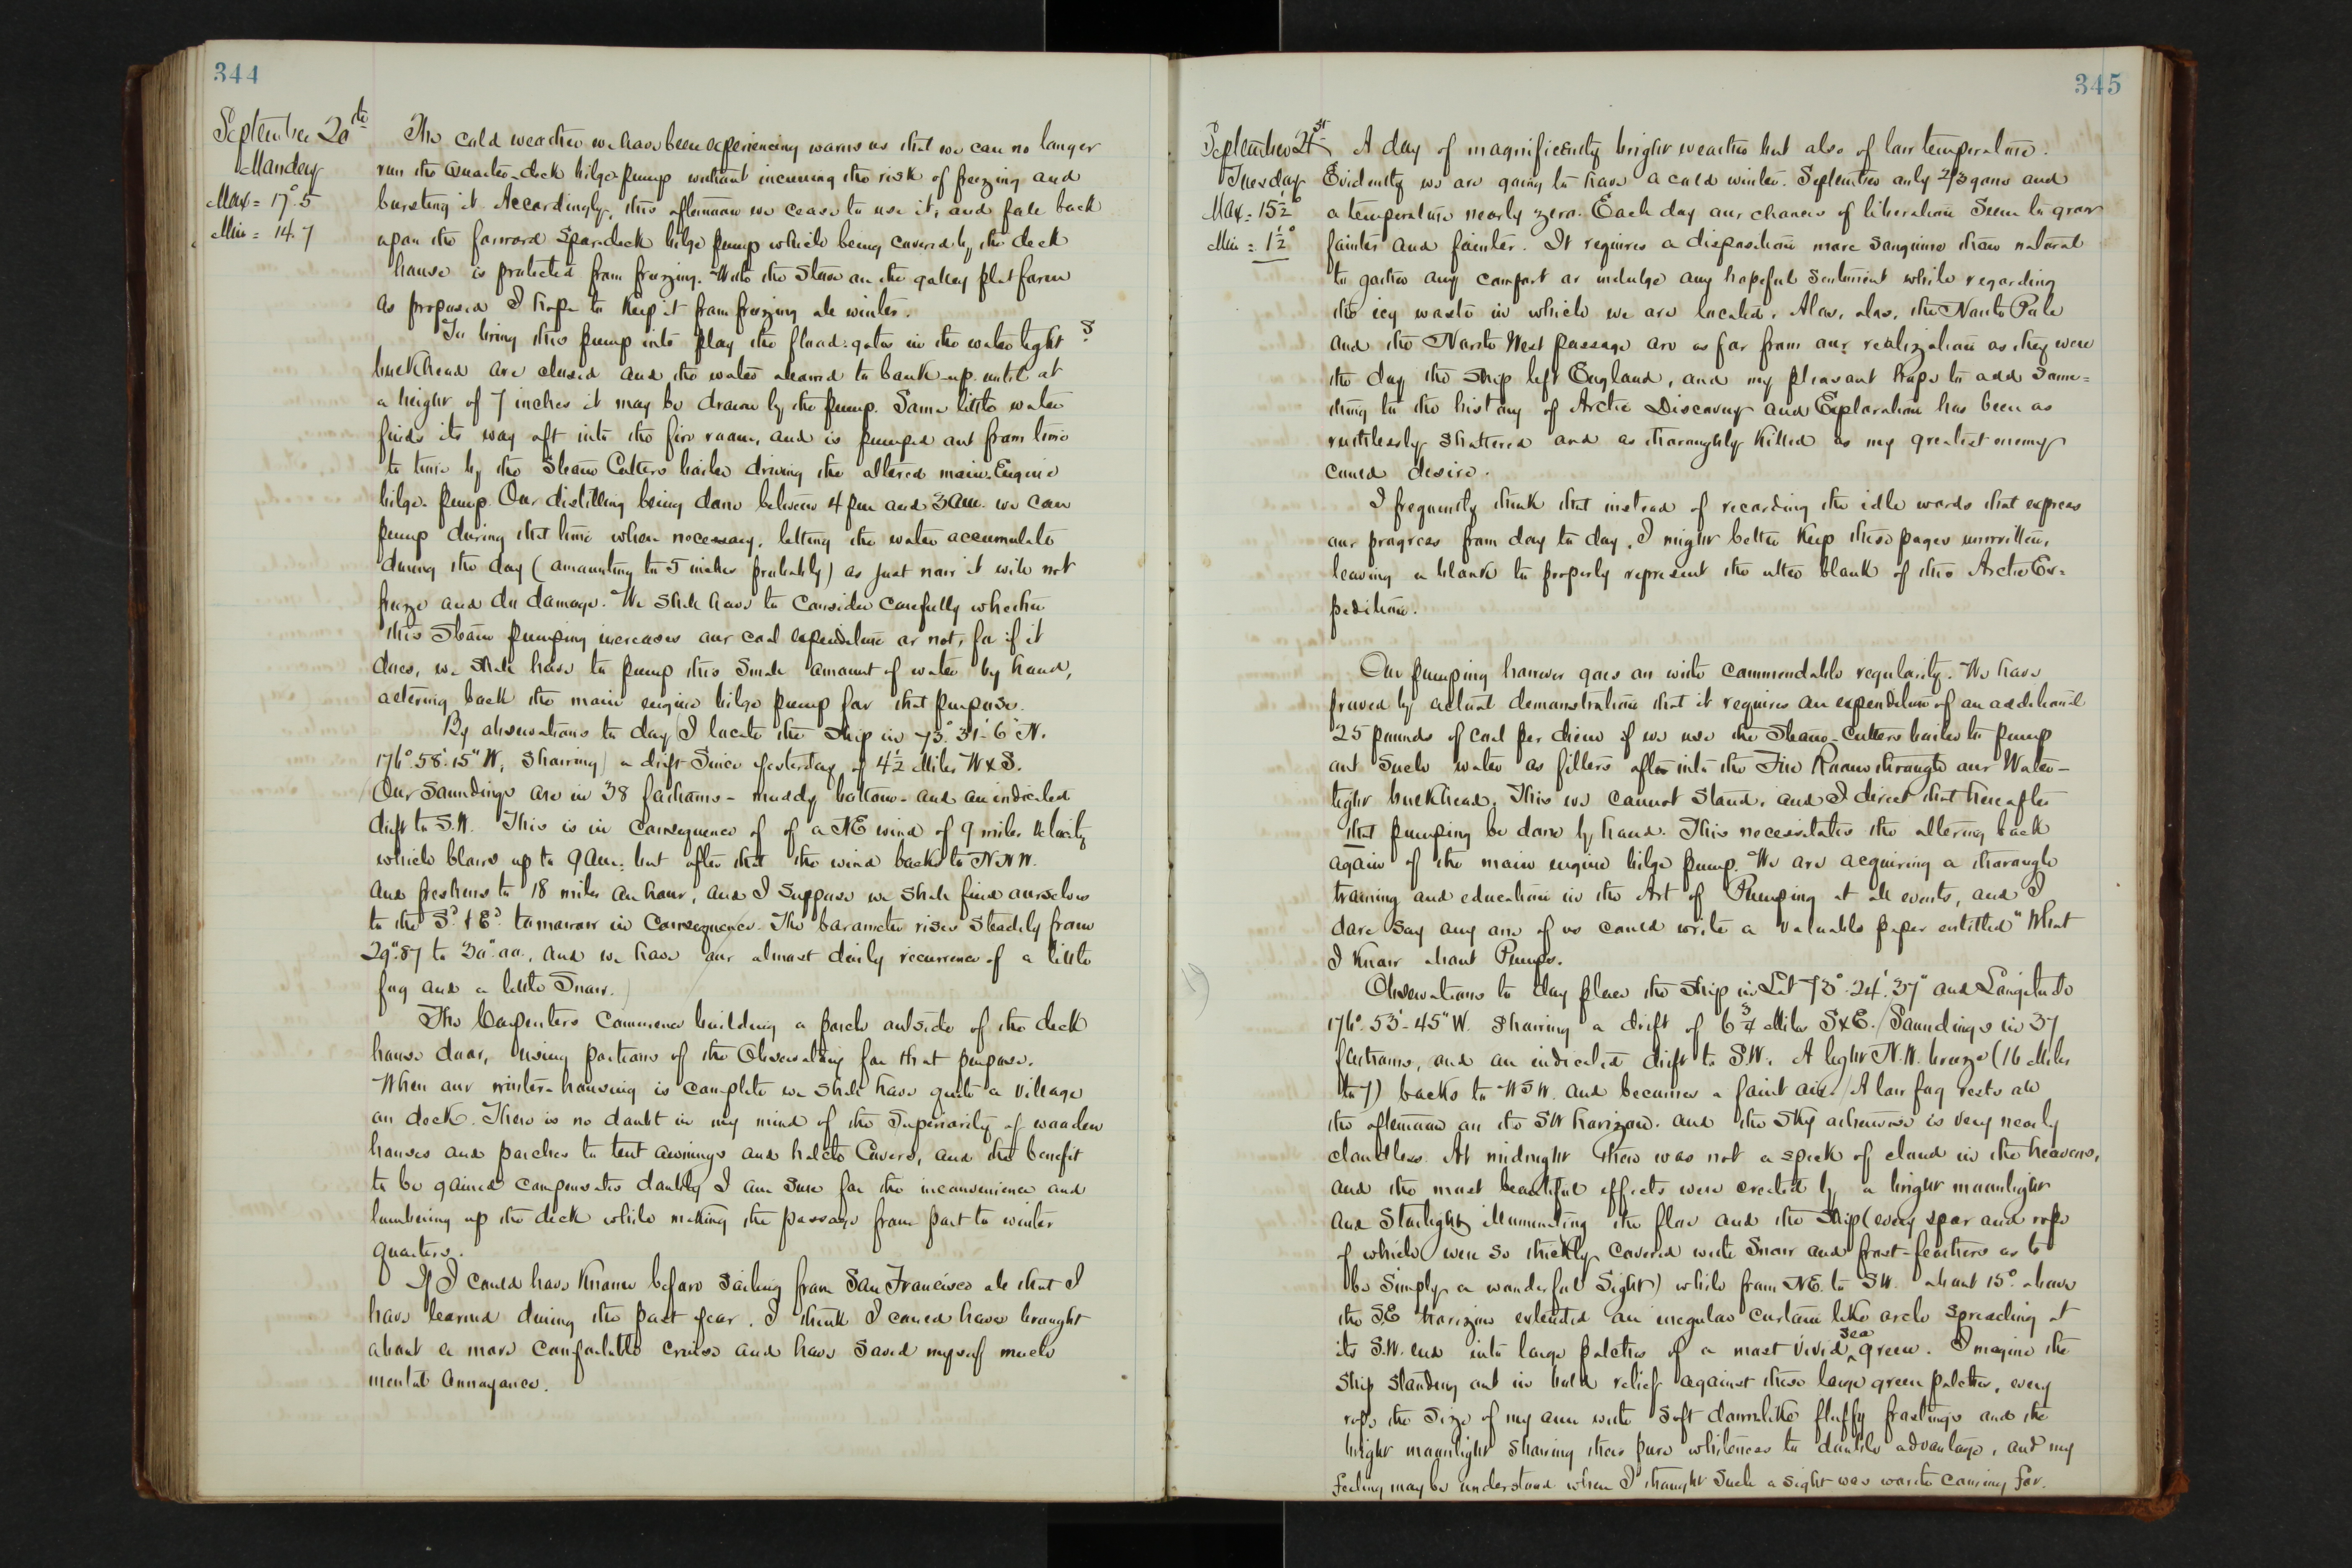 344
September 20th
Monday
Max = 17°.5
Min = 14.7
The cold weather we have been experiencing warns us that we can no longer
run the Quarter-deck bilge pump without incurring the risk of freezing and
bursting it. Accordingly, this afternoon we cease to use it, and fall back
upon the forward spar-deck bilge pump which being covered by the deck
house is protected from freezing. With the stove on the galley platform
as proposed I hope to keep it from freezing all winter.
To bring this pump into play the flood-gates in the water tight
bulkhead are closed and the water allowed to bank-up until at
a height of 7 inches it may be drawn by the pump. Some little water
finds its way aft into the fire room, and is pumped out from time
to time by the Steam Cutters boiler driving the altered main-Engine
bilge-pump. Our distilling being done between 4 pm and 3 am. we can
pump during that time when necessary, letting the water accumulate
during the day (amounting to 5 inches probably) as just now it will not
freeze and do damage. We shall have to consider carefully whether
this Steam pumping increases our coal expenditure or not, for if it
does, we shall have to pump this small amount of water by hand,
altering back the main engine bilge pump for that purpose.
By observations to day I locate the ship in 73°.31'-6" N.
176°.58'.15" W, showing a drift since yesterday of 4½ miles W x S.
Our soundings are in 38 fathoms - muddy bottom - and an indicated
drift to S.W. This is in consequence of of a NE wind of 9 miles velocity
which blows up to 9 am: but after that the wind backs to NNW.
and freshens to 18 miles an hour, and I suppose we shall find ourselves
to the Sd & Ed. tomorrow in consequence. The barometer rises steadily from
29".87 to 30".00, and we have our almost daily recurrence of a little
fog and a little snow.
The Carpenters commence building a porch outside of the deck
house door, using portions of the Observatory for that purpose.
When our winter-housing is complete we shall have quite a village
on deck. There is no doubt in my mind of the superiority of wooden
houses and porches to tent awnings and hatch covers, and the benefit
to be gained compensates doubly I am sure for the inconvenience and
lumbering up the deck while making the passage from port to winter
quarters.
If I could have known before sailing from San Francisco all that I
have learned during the past year, I think I could have brought
about a more comfortable cruise and have saved myself much
mental annoyance.
345
September 21st
Tuesday
Max = 15½°
Min = 1½°
A day of magnificently bright weather but also of low temperature.
Evidently we are going to have a cold winter. September only 2/3 gone and
a temperature nearly zero. Each day our chances of liberation seem to grow
fainter and fainter. It requires a disposition more sanguine than natural
to gather any comfort or indulge any hopeful sentiment while regarding
the icy waste in which we are located. Alas, alas, the North Pole
and the North West passage are as far from our realization as they were
the day the ship left England, and my pleasant hope to add some=
thing to the history of Arctic Discovery and Exploration has been as
ruthlessly shattered and as thoroughly killed as my greatest enemy
could desire.
I frequently think that instead of recording the idle words that express
our progress from day to day, I might better keep these pages unwritten,
leaving a blank to properly represent the utter blank of this Arctic Ex=
pedition.
Our pumping however goes on with commendable regularity. We have
proved by actual demonstration that it requires an expenditure of an additional
25 pounds of coal per diem if we use the Steam-Cutters boiler to pump
out such water as filters aft into the Fire Room through our Water-
tight bulkhead. This we cannot stand, and I direct that hereafter
that pumping be done by hand. This necessitates the altering back
again of the main engine bilge pump. We are acquiring a thorough
training and education in the Art of Pumping at all events, and I
dare say any one of us could write a valuable paper entitled "What
I know about Pumps.
Observations to day place the ship in Lat 73°.24'.37" and Longitude
176°.53'-45" W. showing a drift of 6¾ miles S x E. Soundings in 37
fathoms, and an indicated drift to S.W. A light N.W. breeze (16 miles
to 7) backs to WSW. and becomes a faint air. A low fog rests all
the afternoon on the SW horizon. and the sky otherwise is very nearly
cloudless. At midnight there was not a speck of cloud in the heavens,
and the most beautiful effects were created by a bright moonlight
and starlight illuminating the floe and the ship (every spar and rope
of which were so thickly covered with snow and frost-feathers as to
be simply a wonderful sight) while from NE. to SW. about 15° above
the SE horizon extended an irregular curtain like arch spreading at
its S.W. end into large patches of a most vivid sea green. Imagine the
ship standing out in bold relief against these large green patches, every
rope the size of my arm with soft downlike fluffy frostings and the
bright moonlight showing their pure whiteness to double advantage, and my
feeling may be understood when I thought such a sight was worth coming for.